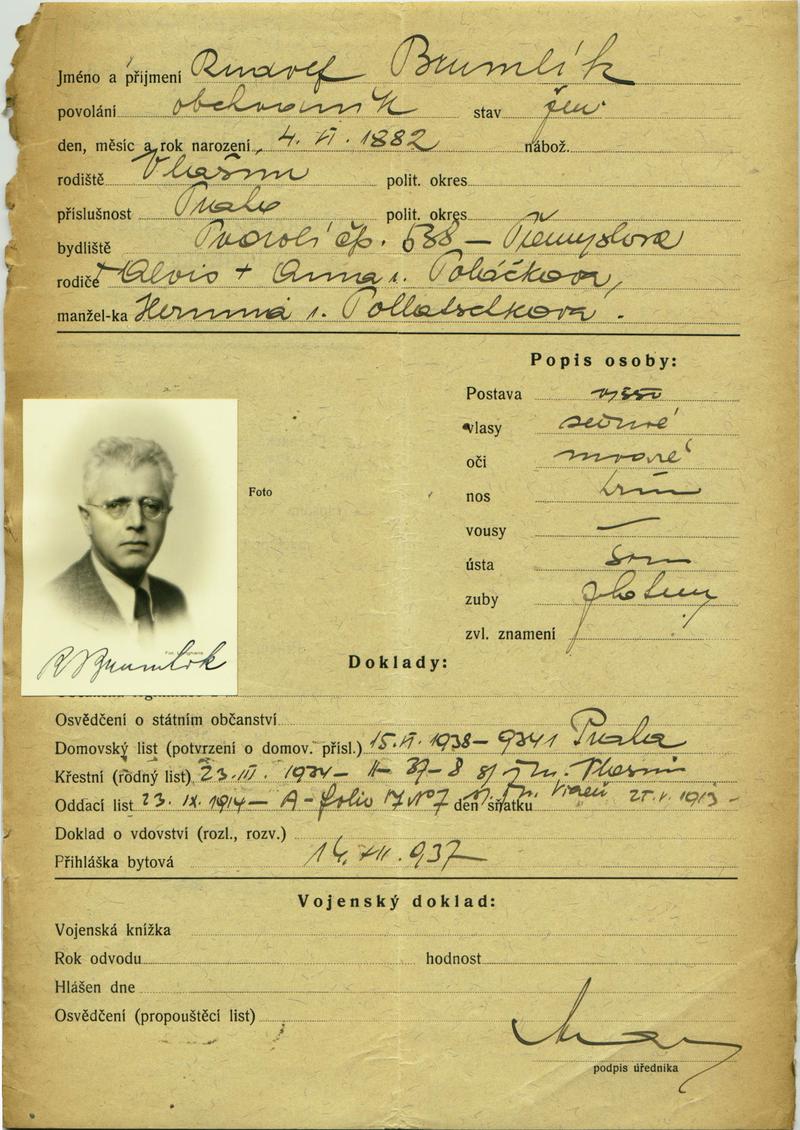 Jméno a příjmení Rudolf Brumlík
povolání obchodník stav žen.
den, měsíc a rok narození 4. VI. 1882 nábož.
rodiště Vlašim polit. okres
příslušnost Praha polit. okres
bydliště Podolí čp. 538 – Přemyslova
rodiče Alois + Anna r. Poláčkova,
manžel-ka Hermina r. Pollatschkova.
Popis osoby:
Postava vyšší
vlasy šedivé
oči modré
Foto
nos
vousy —
ústa
zuby
zvl. znamení
R Brumlík
Doklady:
Osvědčení o státním občanství
Domovský list (potvrzení o domov. přísl.) 15. VI. 1938 – 9341 Praha
Křestní (rodný list) 23. III. 1934 – II – 37 – 8
Oddací list 23. IX. 1914 – A – folio 17 No 7 den sňatku
Doklad o vdovství (rozl., rozv.)
Přihláška bytová 14. XII. 937
Vojenský doklad:
Vojenská knížka
Rok odvodu hodnost
Hlášen dne
Osvědčení (propouštěcí list)
podpis úředníka